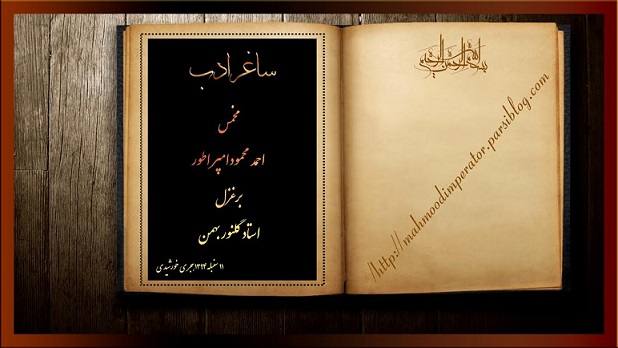 ساغر ادب
مخمس
احمد محمود امپراطور
بر غزل
استاد گلنور بهمن
۱۱ سنبله ۱۳۹۴ هجری خورشیدی
بسم الله الرحمن الرحیم
http://mahmoodimperator.parsiblog.com